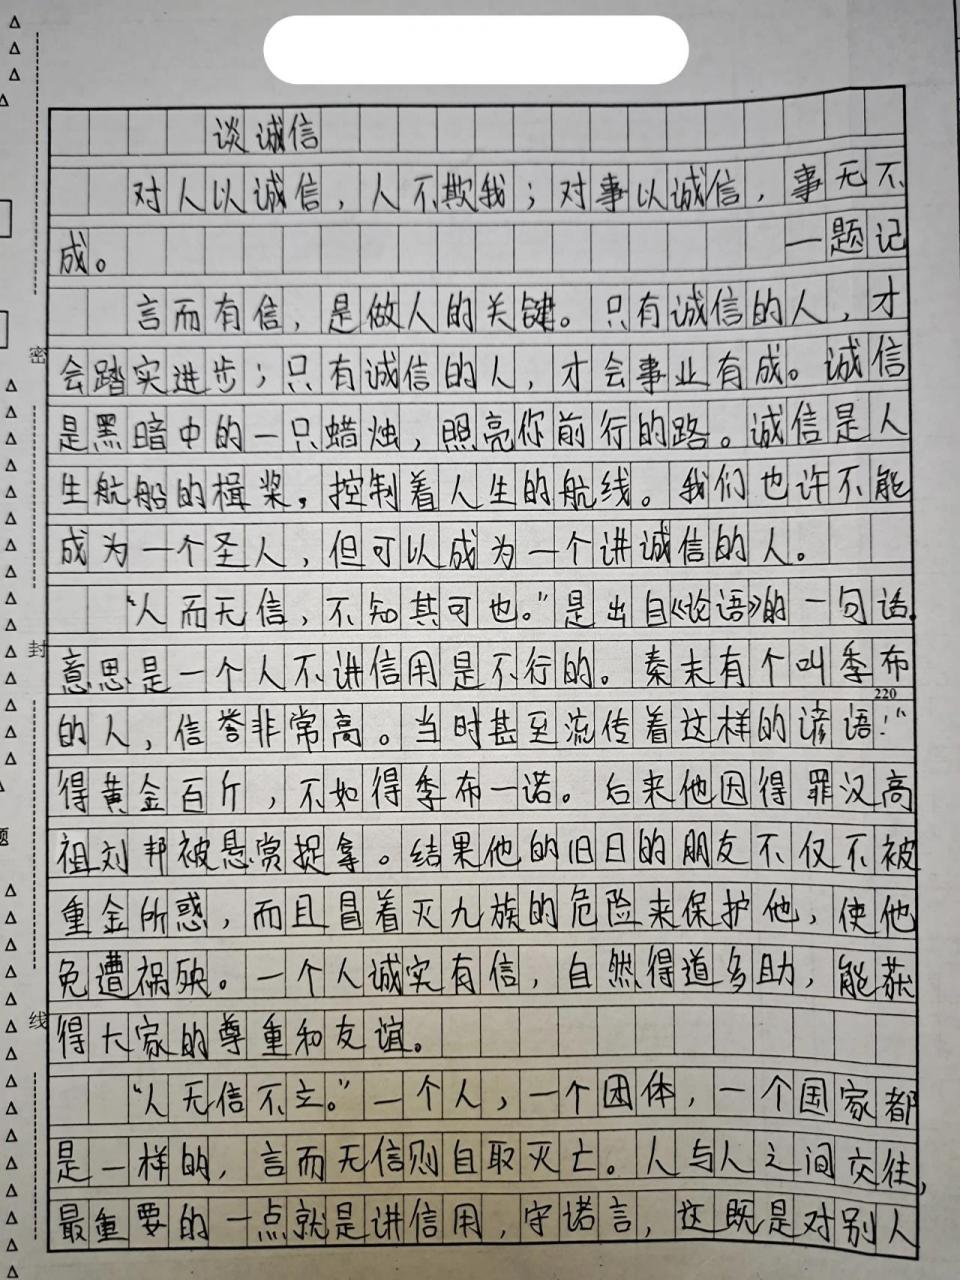 谈诚信
对人以诚信，人不欺我；对事以诚信，事无不
成。 —题记
言而有信，是做人的关键。只有诚信的人，才
会踏实进步；只有诚信的人，才会事业有成。诚信
是黑暗中的一只蜡烛，照亮你前行的路。诚信是人
生航船的楫桨，控制着人生的航线。我们也许不能
密
成为一个圣人，但可以成为一个讲诚信的人。
“人而无信，不知其可也。”是出自《论语》的一句话。
封
意思是一个人不讲信用是不行的。秦末有个叫季布
220
的人，信誉非常高。当时甚至流传着这样的谚语：“
得黄金百斤，不如得季布一诺。后来他因得罪汉高
祖刘邦被悬赏捉拿。结果他的旧日的朋友不仅不被
题
重金所惑，而且冒着灭九族的危险来保护他，使他
免遭祸殃。一个人诚实有信，自然得道多助，能获
线
得大家的尊重和友谊。
“人无信不立。”一个人，一个团体，一个国家都
是一样的，言而无信则自取灭亡。人与人之间交往，
最重要的一点就是讲信用，守诺言，这既是对别人